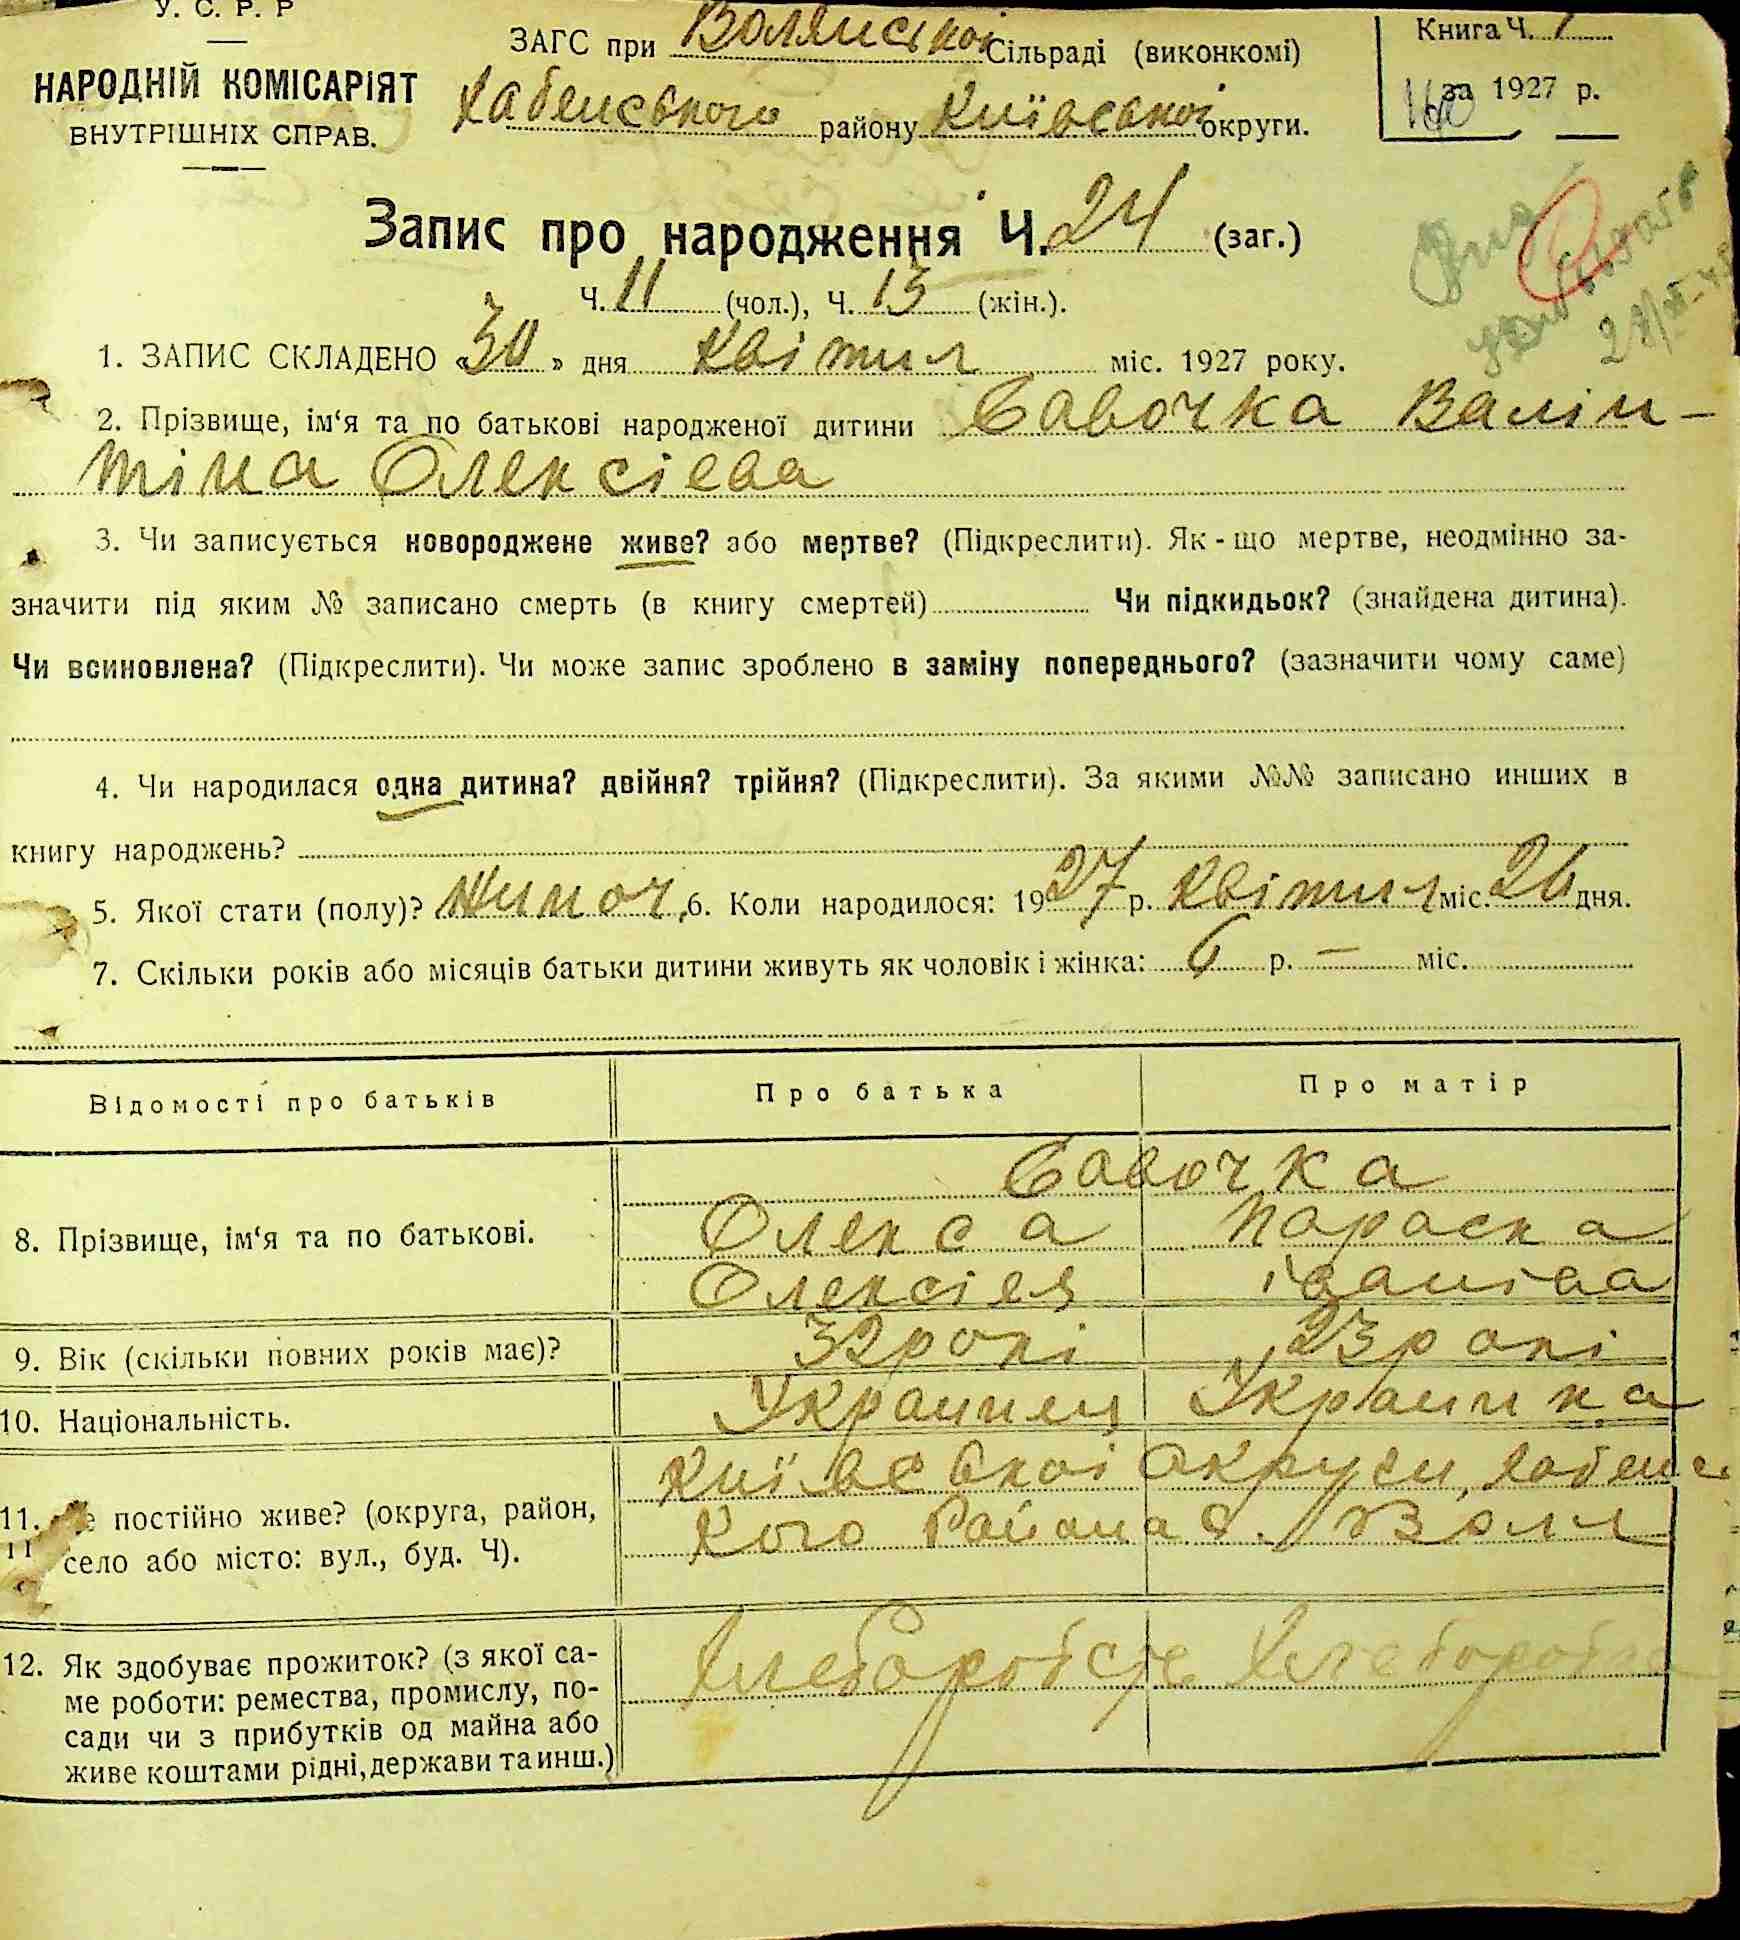 У. С. Р. Р
НАРОДНІЙ КОМІСАРІЯТ
ВНУТРІШНІХ СПРАВ.
ЗАГС при Волянської Сільраді (виконкомі)
Хабенського району Київської округи.
Книга Ч. 1
за 1927 р.
Запис про народження Ч. 24 (заг.)
Ч. 11 (чол.), Ч. 13 (жін.).
1. ЗАПИС СКЛАДЕНО «30» дня квітня міс. 1927 року.
2. Прізвище, ім‘я та по батькові народженої дитини Савочка Валін-
тіна Олексієва
3. Чи записується новороджене живе? або мертве? (Підкреслити). Як-що мертве, неодмінно за-
значити під яким № записано смерть (в книгу смертей) Чи підкидьок? (знайдена дитина).
Чи всиновлена? (Підкреслити). Чи може запис зроблено в заміну попереднього? (зазначити чому саме)
4. Чи народилася одна дитина? двійня? трійня? (Підкреслити). За якими №№ записано инших в
книгу народжень?
5. Якої стати (полу)? Жиноч. 6. Коли народилося: 1927 р. Квітня міс. 26 дня.
7. Скільки років або місяців батьки дитини живуть як чоловік і жінка: 6 р. — міс.
Відомості про батьків Про батька Про матір
Савочка
8. Прізвище, ім‘я та по батькові. Олекса Параска
Олексієв іваніва
9. Вік (скільки повних років має)? 32 рокі 23 рокі
10. Національність. Украинец Украинка
Київської округи, Хабенс
11. постійно живе? (округа, район, кого Района с. Воля
село або місто: вул., буд. Ч).
12. Як здобуває прожиток? (з якої са- Хлеборобств Хлебороб
ме роботи: ремества, промислу, по-
сади чи з прибутків од майна або
живе коштами рідні, держави та инш.)